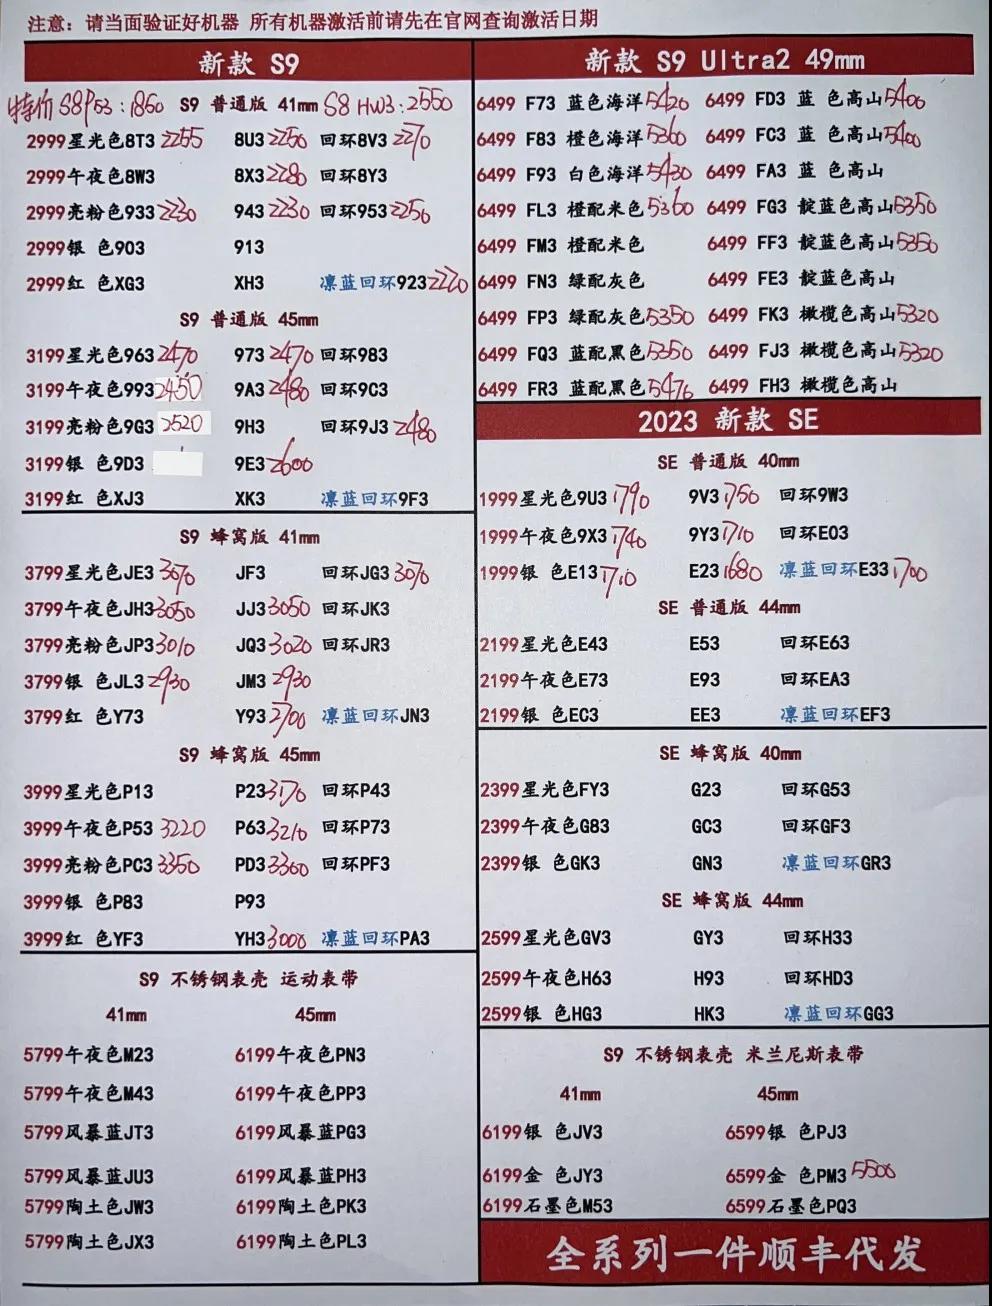 注意：请当面验证好机器 所有机器激活前请先在官网查询激活日期
新款 S9
特价 S8P53：1860 S9 普通版 41mm S8 HW3：2550
2999星光色8T3 2255 8U3 2250 回环8V3 2270
2999午夜色8W3 8X3 2280 回环8Y3
2999亮粉色933 2230 943 2230 回环953 2250
2999银 色903 913
2999红 色XG3 XH3 凛蓝回环923 2220
S9 普通版 45mm
3199星光色963 2470 973 2470 回环983
3199午夜色993 2450 9A3 2480 回环9C3
3199亮粉色9G3 2520 9H3 回环9J3 2480
3199银 色9D3 9E3 2600
3199红 色XJ3 XK3 凛蓝回环9F3
S9 蜂窝版 41mm
3799星光色JE3 3070 JF3 回环JG3 3070
3799午夜色JH3 3050 JJ3 3050 回环JK3
3799亮粉色JP3 3010 JQ3 3020 回环JR3
3799银 色JL3 2930 JM3 2930
3799红 色Y73 Y93 2700 凛蓝回环JN3
S9 蜂窝版 45mm
3999星光色P13 P23 3170 回环P43
3999午夜色P53 3220 P63 3210 回环P73
3999亮粉色PC3 3350 PD3 3360 回环PF3
3999银 色P83 P93
3999红 色YF3 YH3 3000 凛蓝回环PA3
S9 不锈钢表壳 运动表带
41mm 45mm
5799午夜色M23 6199午夜色PN3
5799午夜色M43 6199午夜色PP3
5799风暴蓝JT3 6199风暴蓝PG3
5799风暴蓝JU3 6199风暴蓝PH3
5799陶土色JW3 6199陶土色PK3
5799陶土色JX3 6199陶土色PL3
新款 S9 Ultra2 49mm
6499 F73 蓝色海洋 5420 6499 FD3 蓝 色高山 5400
6499 F83 橙色海洋 5360 6499 FC3 蓝 色高山 5400
6499 F93 白色海洋 5430 6499 FA3 蓝 色高山
6499 FL3 橙配米色 5360 6499 FG3 靛蓝色高山 5350
6499 FM3 橙配米色 6499 FF3 靛蓝色高山 5350
6499 FN3 绿配灰色 6499 FE3 靛蓝色高山
6499 FP3 绿配灰色 5350 6499 FK3 橄榄色高山 5320
6499 FQ3 蓝配黑色 5350 6499 FJ3 橄榄色高山 5320
6499 FR3 蓝配黑色 5470 6499 FH3 橄榄色高山
2023 新款 SE
SE 普通版 40mm
1999星光色9U3 1790 9V3 1750 回环9W3
1999午夜色9X3 1740 9Y3 1710 回环E03
1999银 色E13 1710 E23 1680 凛蓝回环E33 1700
SE 普通版 44mm
2199星光色E43 E53 回环E63
2199午夜色E73 E93 回环EA3
2199银 色EC3 EE3 凛蓝回环EF3
SE 蜂窝版 40mm
2399星光色FY3 G23 回环G53
2399午夜色G83 GC3 回环GF3
2399银 色GK3 GN3 凛蓝回环GR3
SE 蜂窝版 44mm
2599星光色GV3 GY3 回环H33
2599午夜色H63 H93 回环HD3
2599银 色HG3 HK3 凛蓝回环GG3
S9 不锈钢表壳 米兰尼斯表带
41mm 45mm
6199银 色JV3 6599银 色PJ3
6199金 色JY3 6599金 色PM3 5500
6199石墨色M53 6599石墨色PQ3
全系列一件顺丰代发